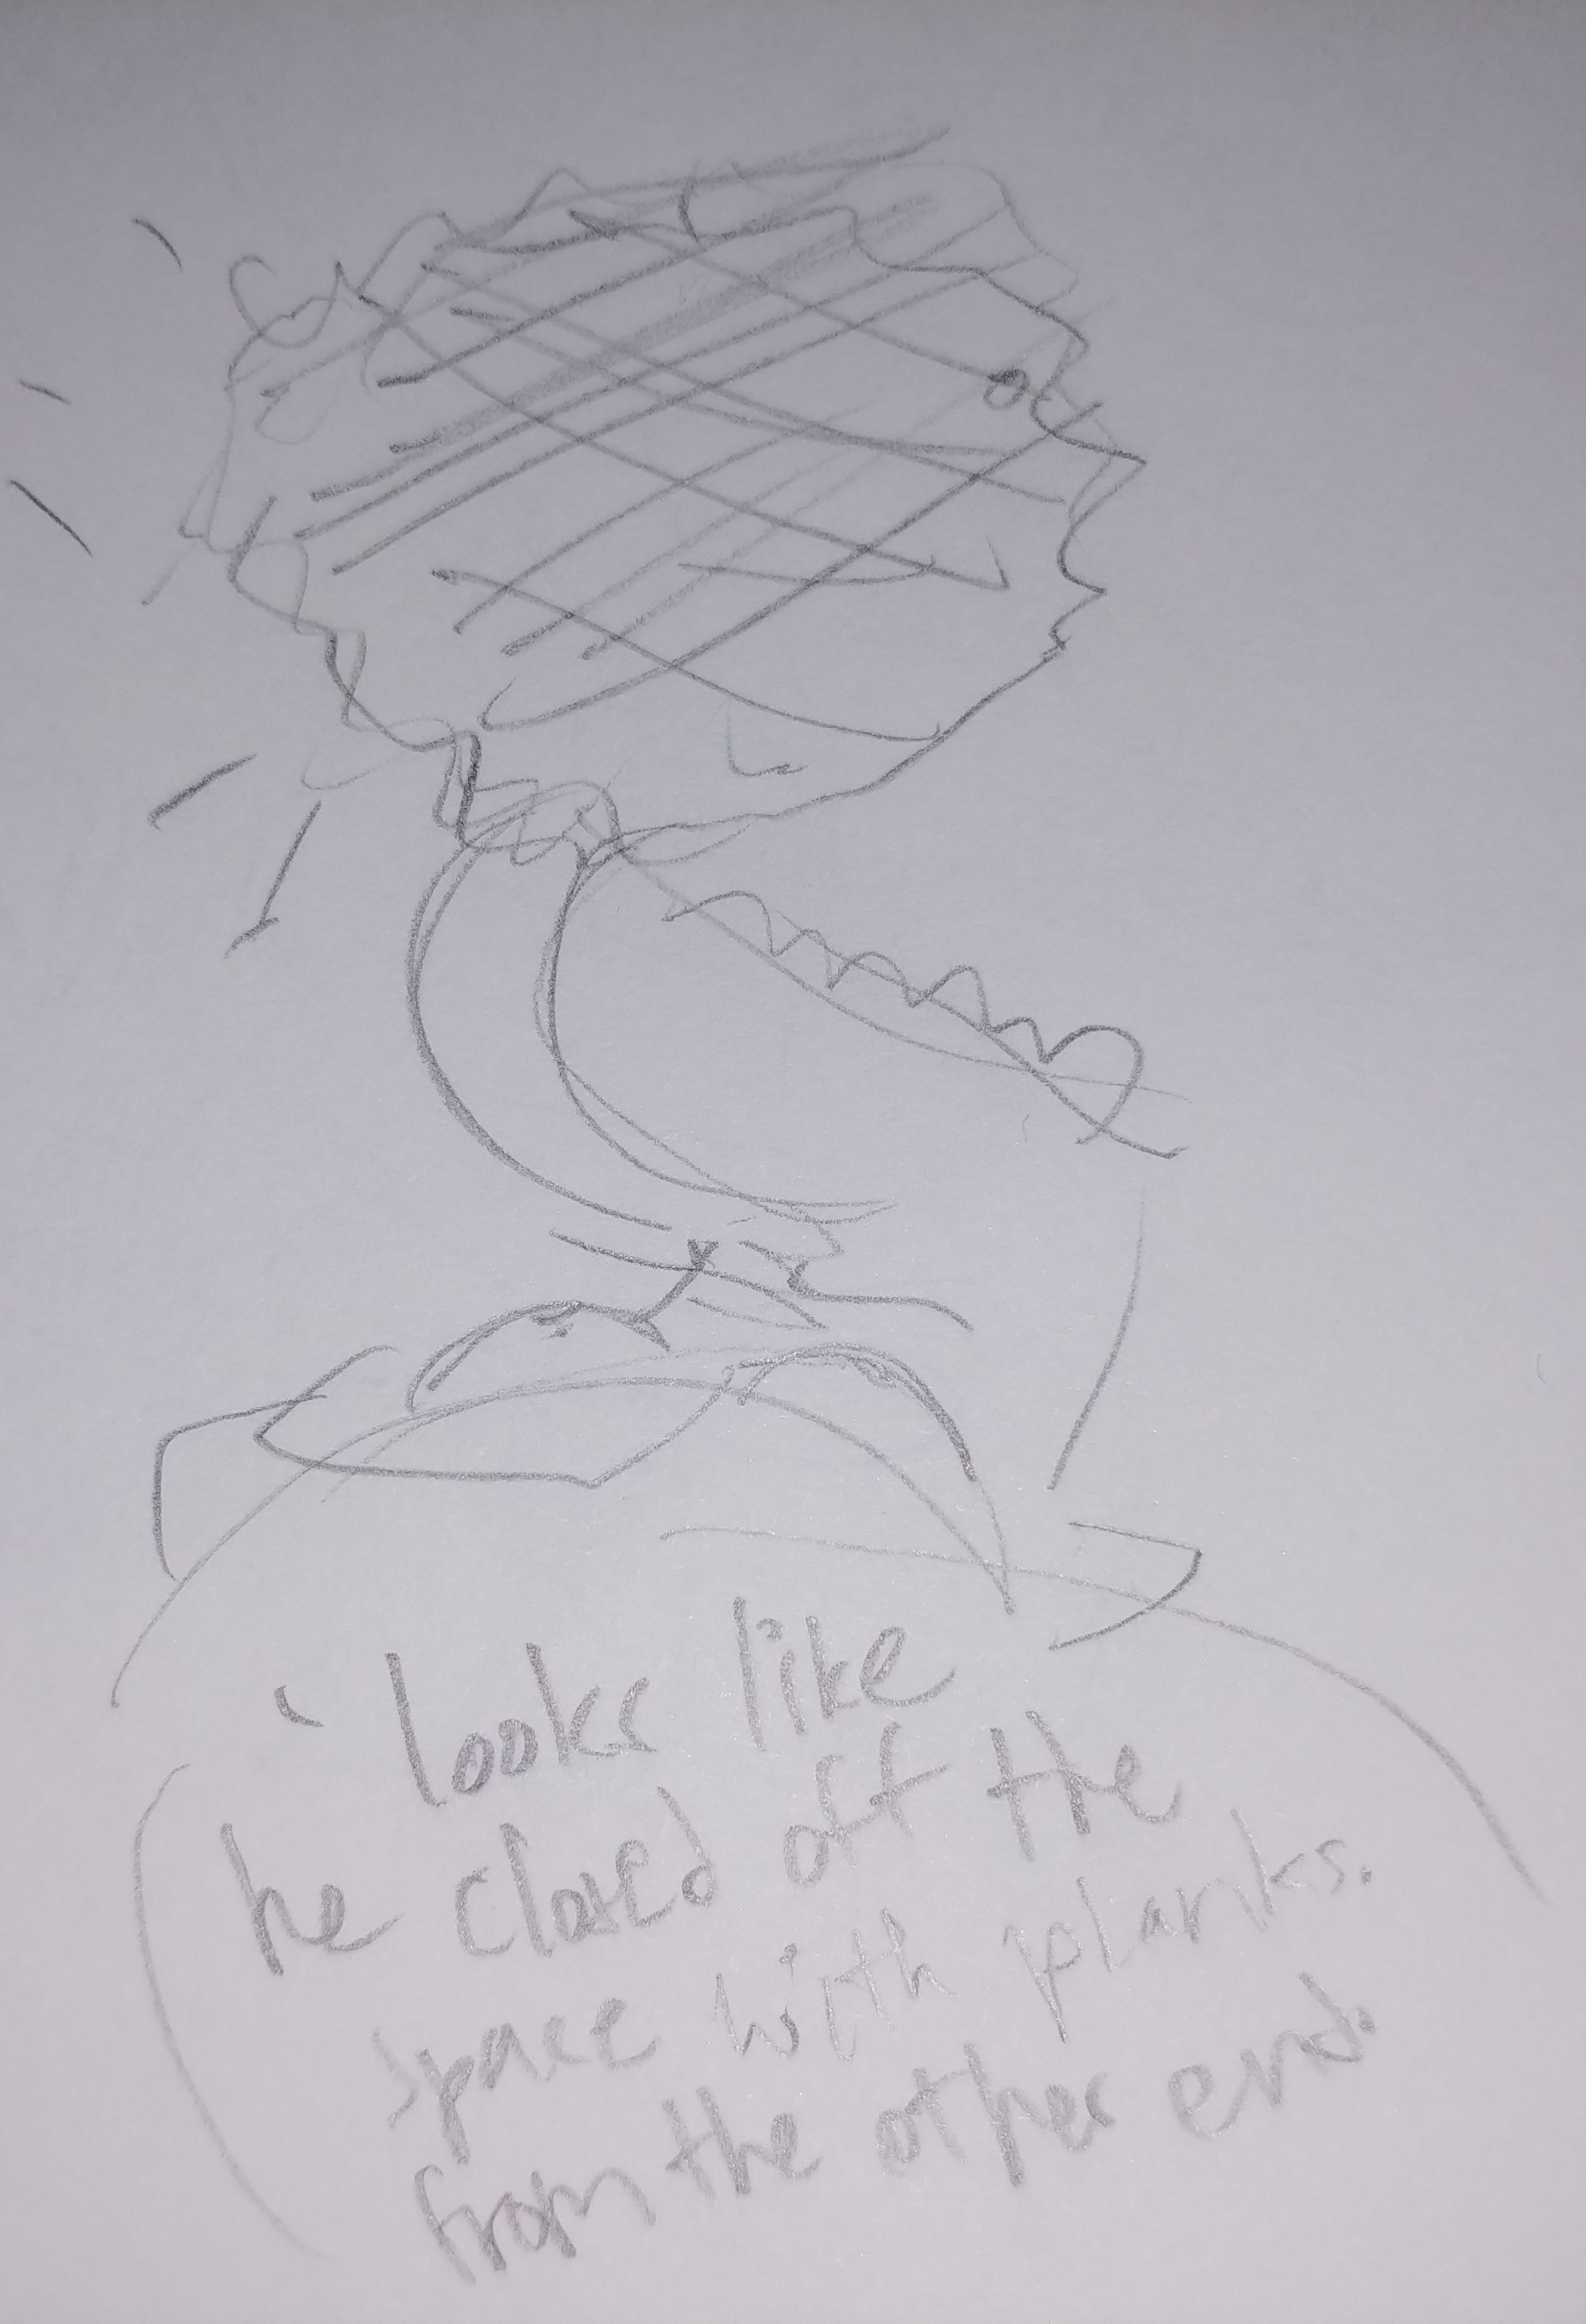 looks like
he closed off the
space with planks.
from the other end.